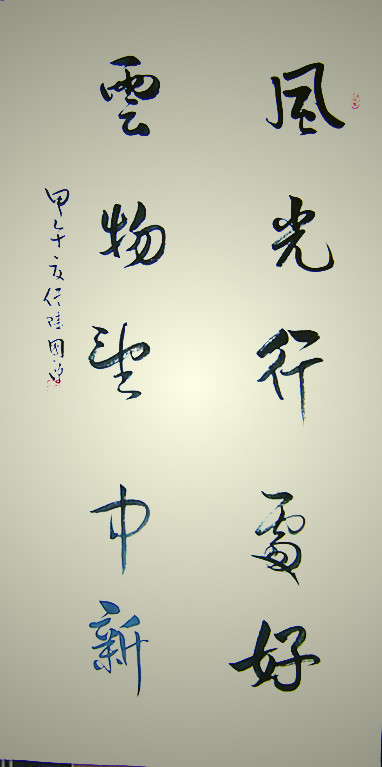 風光行處好
雲物望中新
甲午夏任陸國